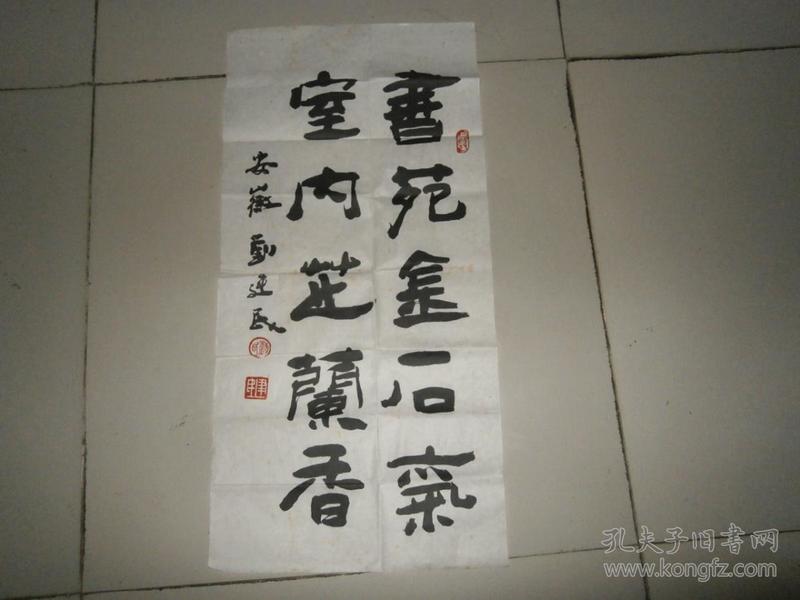 書苑金石氣
室内芝蘭香
安徽劉建民
孔夫子旧书网
www.kongfz.com